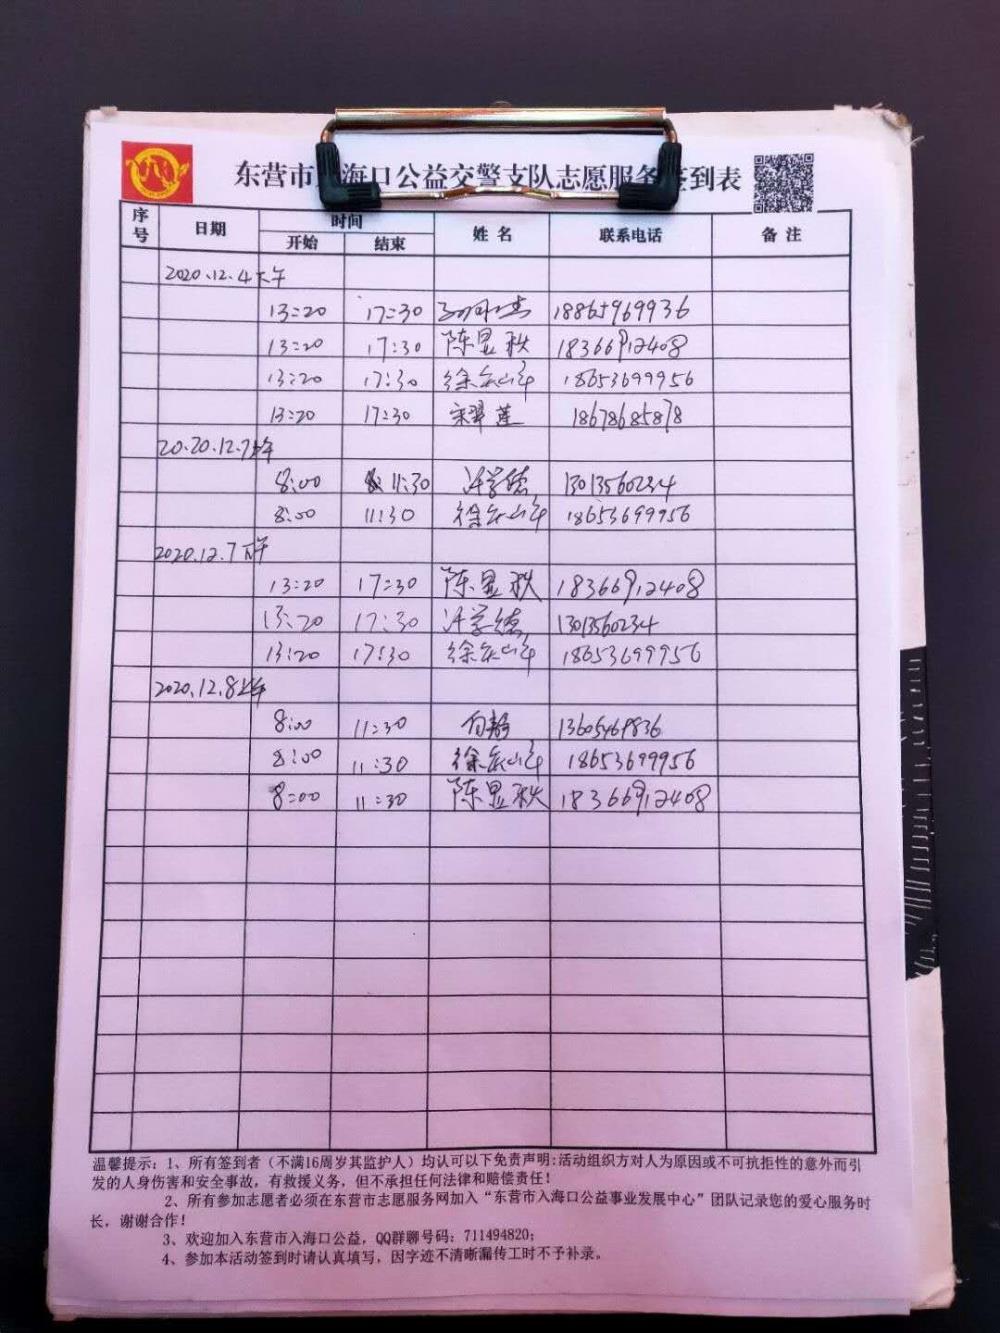 东营市入海口公益交警支队志愿服务签到表
序号 日期 时间 开始 结束 姓名 联系电话 备注
2020.12.4下午
13:20 17:30 18865969936
13:20 17:30 陈显秋 18366912408
13:20 17:30 徐庆山 18653699956
13:20 17:30 宋翠莲 18678685878
2020.12.7上午
8:00 11:30 许学德 13013560234
8:00 11:30 徐庆山 18653699956
2020.12.7下午
13:20 17:30 陈显秋 18366912408
13:20 17:30 许学德 13013560234
13:20 17:30 徐庆山 18653699956
2020.12.8上午
8:00 11:30 向静 13605469836
8:00 11:30 徐庆山 18653699956
8:00 11:30 陈显秋 18366912408
温馨提示：1、所有签到者（不满16周岁其监护人）均认可以下免责声明:活动组织方对人为原因或不可抗拒性的意外而引
发的人身伤害和安全事故，有救援义务，但不承担任何法律和赔偿责任！
2、所有参加志愿者必须在东营市志愿服务网加入“东营市入海口公益事业发展中心”团队记录您的爱心服务时
长，谢谢合作！
3、欢迎加入东营市入海口公益，QQ群聊号码：711494820；
4、参加本活动签到时请认真填写，因字迹不清晰漏传工时不予补录。